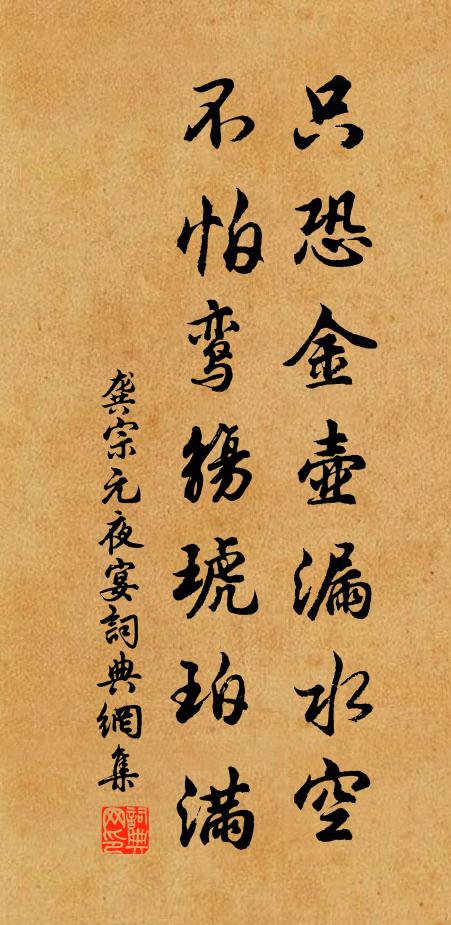 只恐金壺漏水空
不怕鸾觴琥珀满
龔宗元夜宴詞典網集
詞典网印